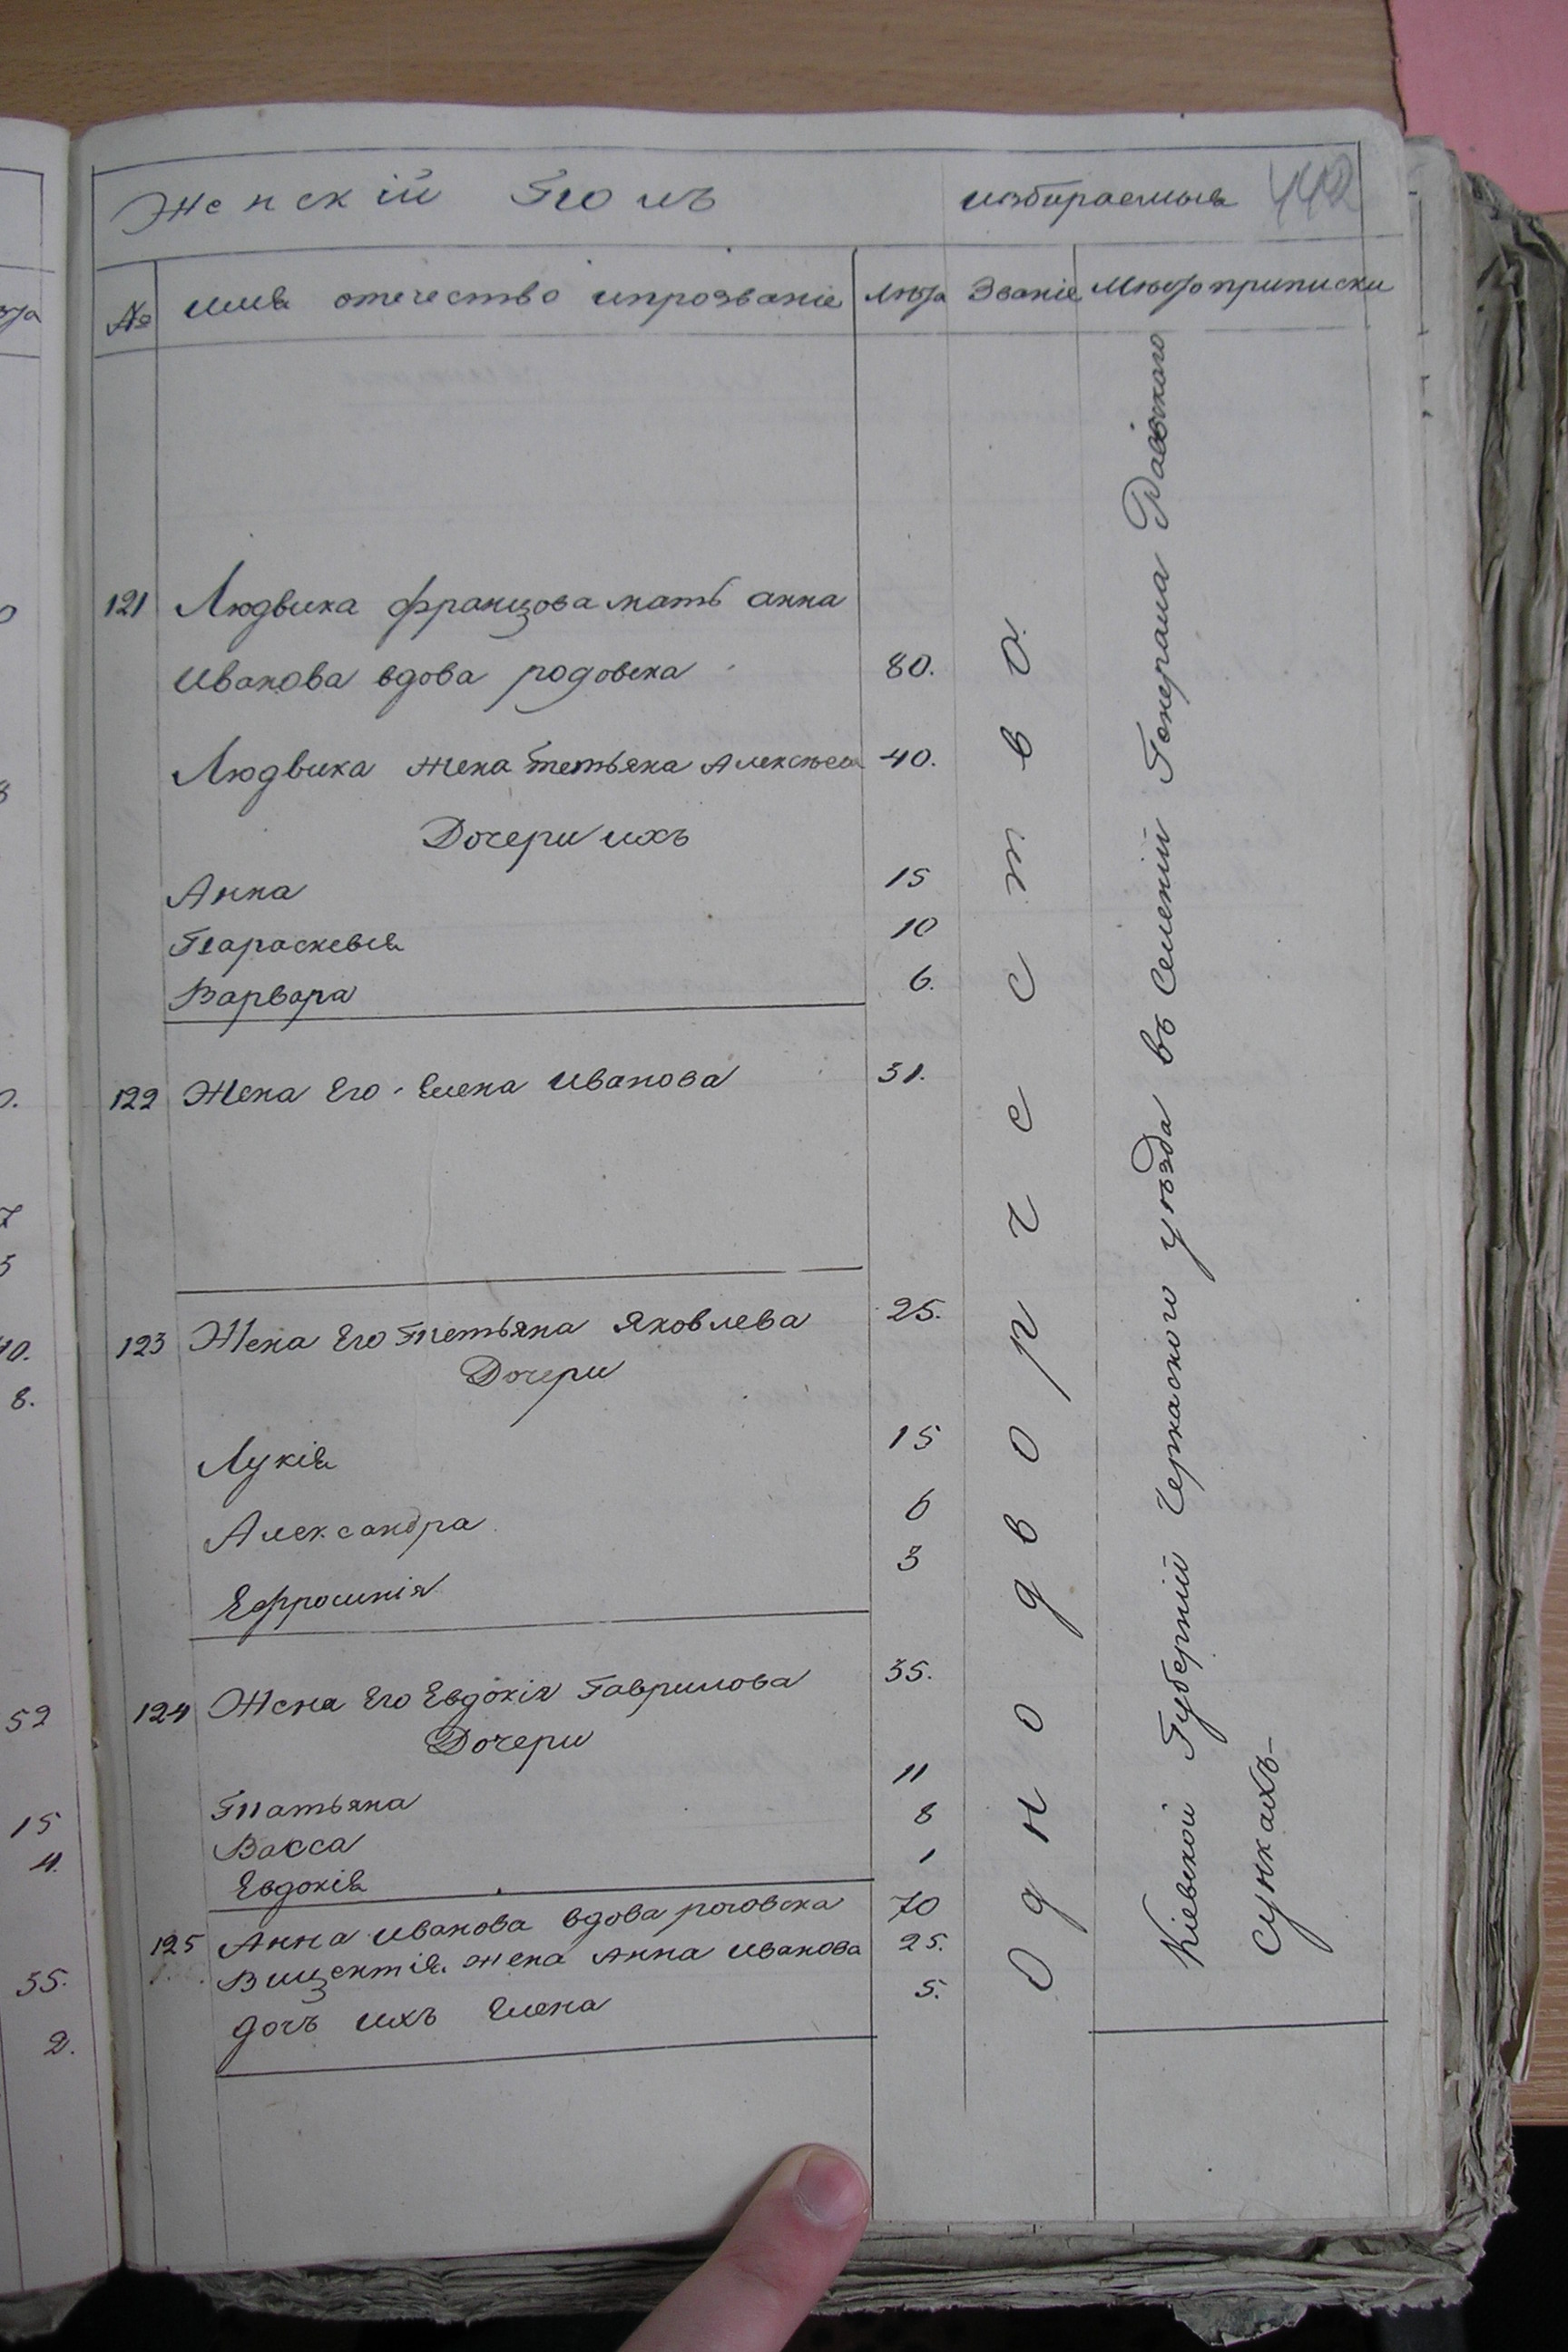 Женскій Полъ избираемыя 442
№ имя отечество ипрозваніе Лѣта Званіе Мѣсто приписки
121 Людвика францова мать анна
Иванова вдова родовска 80.
Людвика жена Тетьяна Алексѣева 40.
Дочери ихъ
Анна 15
Параскевія 10
Варвара 6.
122 Жена Его Елена Иванова 31.
123 Жена Его Тетьяна Яковлева 25.
Дочери
Лукія 15
Александра 6
Ефросинія 3
124 Жена Его Евдокія Гаврилова 35.
Дочери
Татьяна 11
Васса 8
Евдокія 1
125 Анна Иванова вдова роговска 70
Вицентія жена Анна Иванова 25.
дочъ ихъ Елена 5.
Однодворчество.
Кіевской Губерній Черкаского уѣзда въ Селеній Генерала Раевского
Сункахъ
0.
7
5
10.
8.
52
15
4.
35.
2.